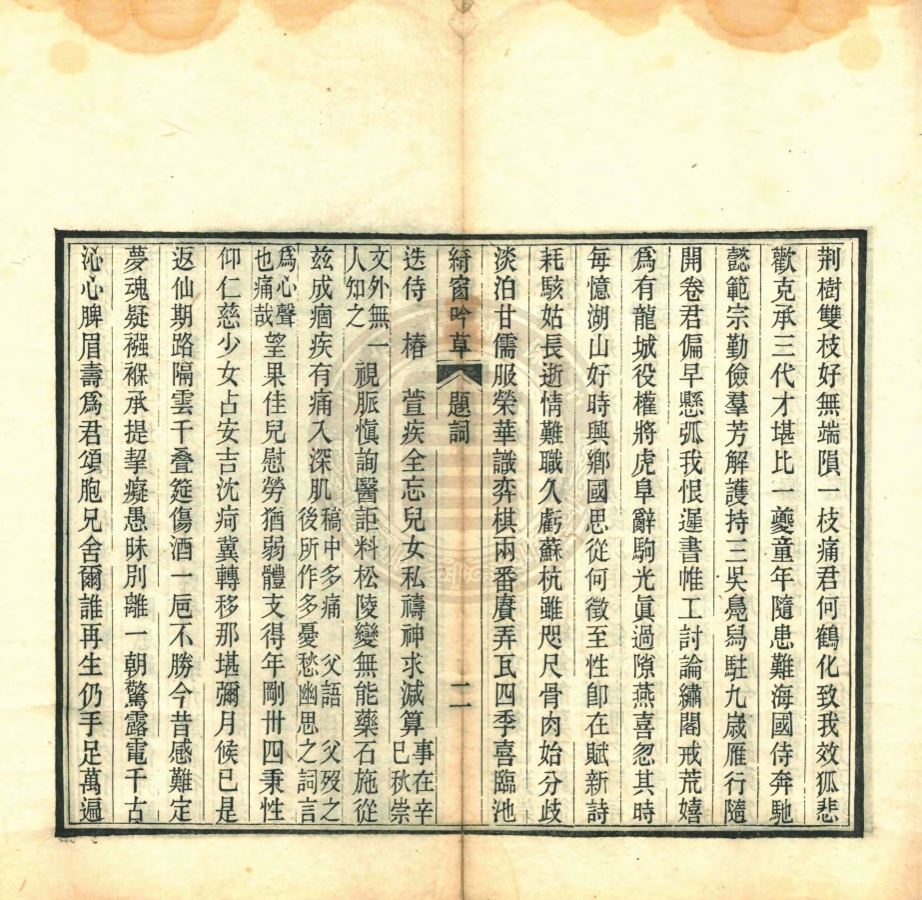 荆樹雙枝好無端隕一枝痛君何鶴化致我效狐悲
歡克承三代才堪比一夔童年隨患難海國侍奔馳
懿範宗勤儉羣芳解護持三吳鳧舄駐九歲雁行隨
開卷君偏早懸弧我恨遲書帷工討論繡閣戒荒嬉
爲有龍城役權將虎阜辭駒光眞過隙燕喜忽其時
每憶湖山好時興鄉國思從何徵至性卽在賦新詩
耗駭姑長逝情難職久虧蘇杭雖咫尺骨肉始分歧
淡泊甘儒服榮華識弈棋兩番賡弄瓦四季喜臨池
綺窗吟草 題詞 二
迭侍 椿 萱疾全忘兒女私禱神求減算事在辛巳秋崇
文外無人知之一視脈愼詢醫詎料松陵變無能藥石施從
茲成痼疾有痛入深肌稿中多痛 父語 父歿之後所作多憂愁幽思之詞言
爲心聲也痛哉望果佳兒慰勞猶弱體支得年剛卅四秉性
仰仁慈少女占安吉沈疴冀轉移那堪彌月候已是
返仙期路隔雲千叠筵傷酒一巵不勝今昔感難定
夢魂疑襁褓承提挈癡愚昧別離一朝驚露電千古
沁心脾眉壽爲君頌胞兄舍爾誰再生仍手足萬遍